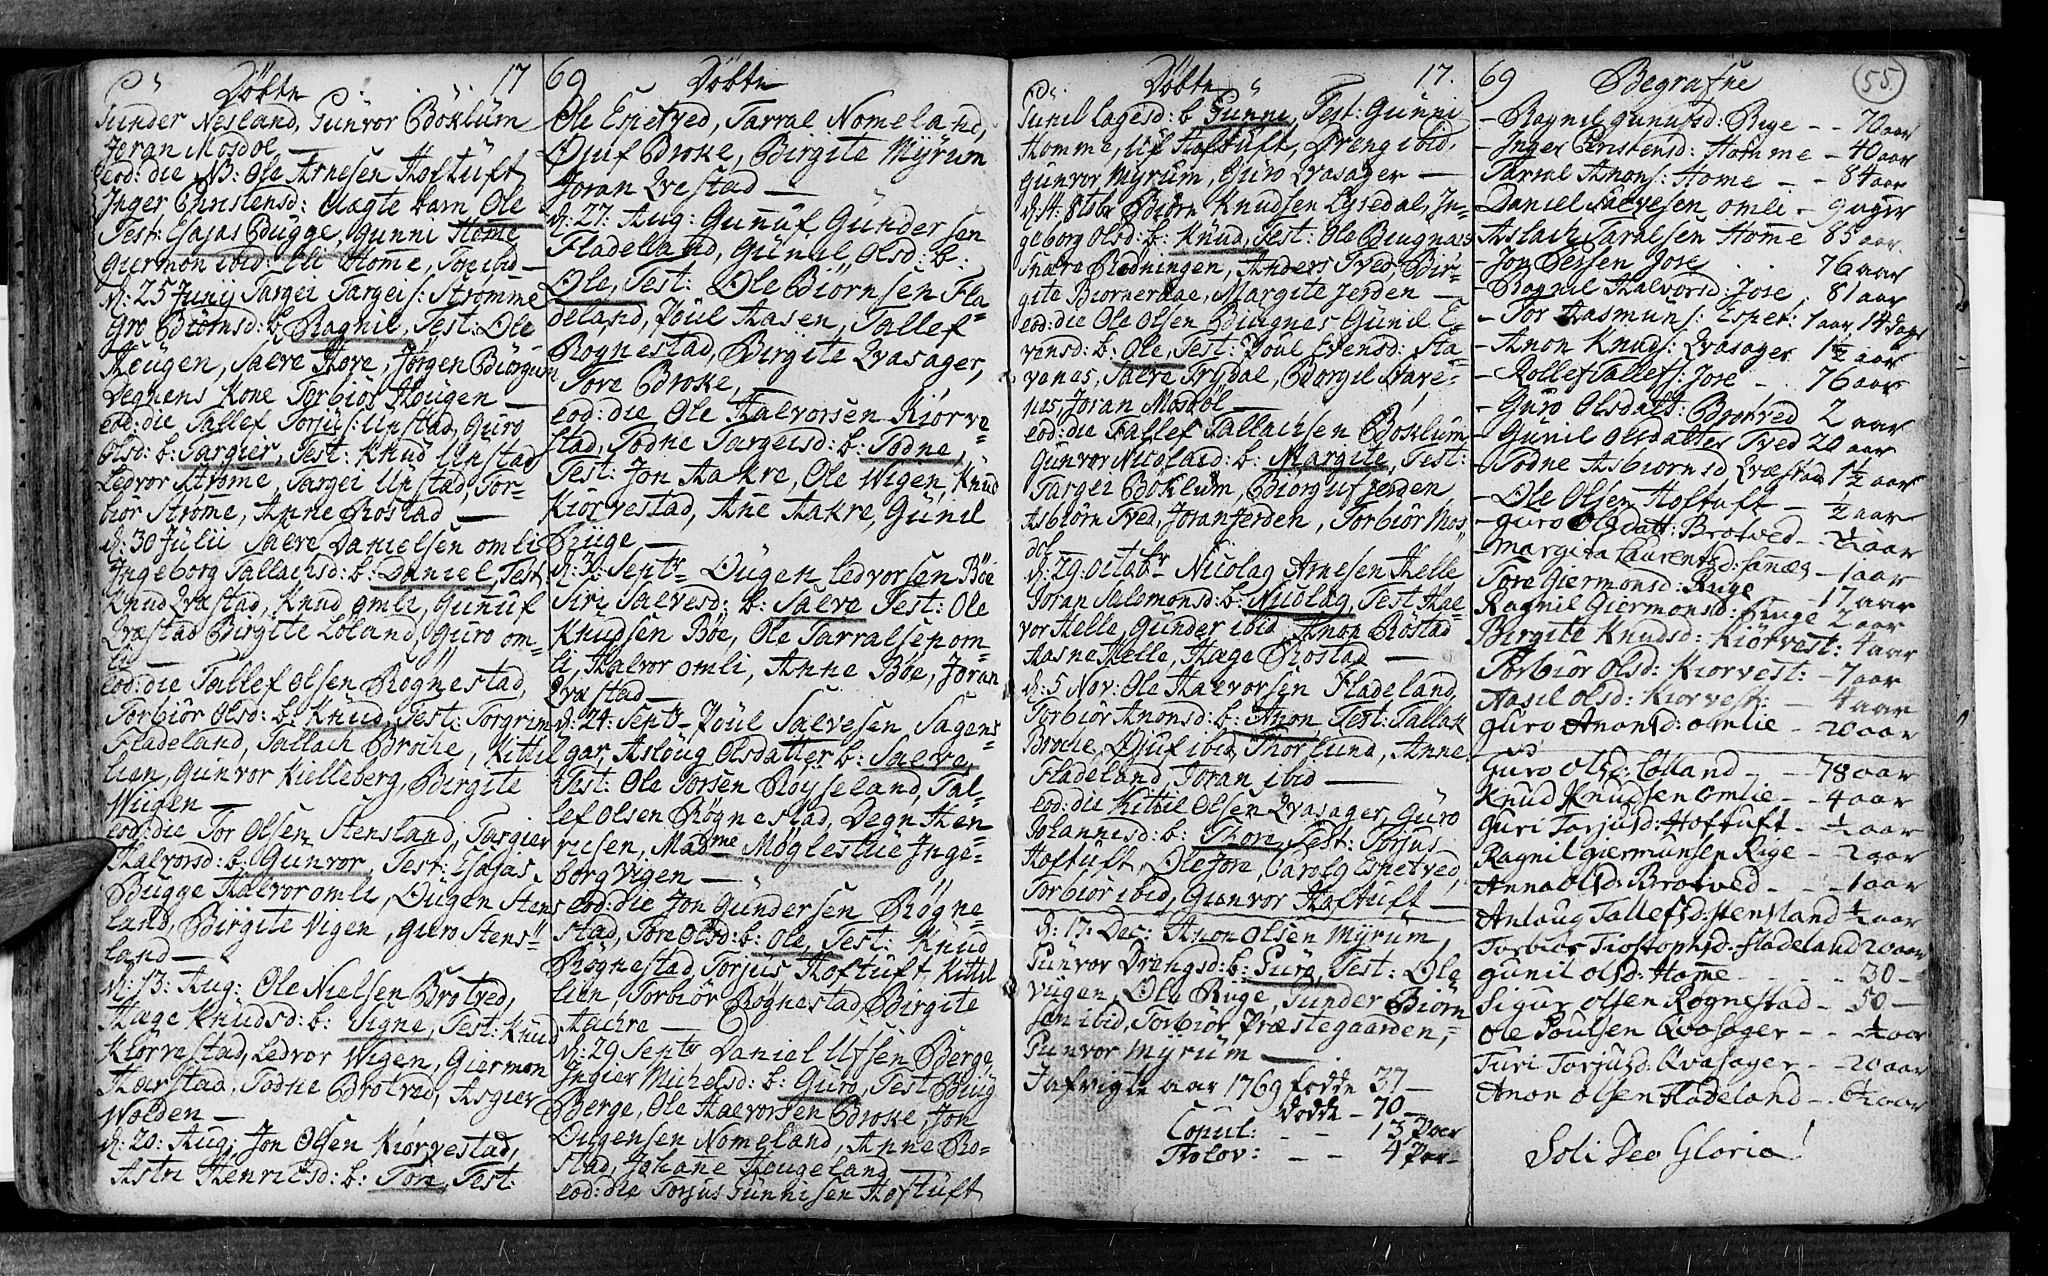 Døbte 17
Gunder Nesland, Gunvor Bøklum
Joran Mosdøl —
eod: die NB: Ole Arnesen Hoftuft
Inger Christensd: Uægte barn Ole
Test: Esajas Bugge, Gunni Home
Giermon ibid: Uli Home, Tore ibid —
d: 25 Junij Targei Targeis: Strømme
Gro Biørnsd: b: Ragnil, Test: Ole
Heugen, Saeve Hore, Jørgen Biørgum
Degnens Kone Torbiør Hougen —
eod: die Tallef Torjus: Upstad, Guro
Olsd: b: Targier, Test: Knud Upstad
Ledvor Strøme, Targei Upstad, Tor-
biør Strøme, Anne Rostad —
d: 30 Julii Saeve Danielsen omli
Ingeborg Tallachsd: b: Daniel, Test
Knud Qvæstad, Knud omli, Gunuf
Qvæstad Birgite Løland, Guro om-
li —
eod: die Tallef Olsen Røgnestad,
Torbiør Olsd: b: Knud, Test: Torgrim
Fladeland, Tallach Broche, Kittil
lien, Gunvor Kielleberg, Birgite
Wiigen —
eod: die Tor Olsen Stensland, Targier
Halvorsd: b: Gunvor, Test: Esajas
Bugge Halvor omli, Ougen Stens
land, Birgite Vigen, Guro Stens-
land —
d: 13: Aug: Ole Nielsen Brotved,
Hæge Knudsd: b: Signe, Test: Knud
Kiørvestad, Ledvor Wigen, Giermon
Harstad, Todne Brotved, Asgier
Wolden —
d: 20: Aug: Jon Olsen Kiørvestad,
Astri Henricsd: b: Tore, Test:
69 Døbte
Ole Espetved, Tarral Nomeland,
Ojuf Broke, Birgite Myrum
Joran Qvestad —
d: 27: Aug: Gunuf Gundersen
Fladeland, Gunil Olsd: b:
Ole, Test: Ole Biørnsen Fla-
deland, Poul Aasen, Tallef
Rognestad, Birgite Qvasager,
Tore Broke, —
eod: die Ole Halvorsen Kiørve-
stad, Todne Targeisd: b: Todne,
Test: Jon Hakre, Ole Wigen, Knud
Kiørvestad, Ane Hakre, Gunil
Ruge —
d: 3: Septr Ougen Ledvorsen Bøe
Siri Salvesd: b: Saeve Test: Ole
Knudsen Bøe, Ole Tarralsen om-
li, Halvor omli, Anne Bøe, Joran
Qvæstad —
d: 24: Septr Poul Salvesen Sagens-
gar, Asloug Olsdatter b: Saeve,
Test: Ole Torsen Røyseland, Tal-
lef Olsen Røgnestad, Degn Hen-
ricsen, Madme Møglestue Inge-
borg Vigen —
eod: die Jon Gundersen Røgne-
stad, Tore Olsd: b: Ole, Test: Knud
Røgnestad, Torjus Hoftuft Kittil
lien, Torbiør Røgnestad Birgite
Hachre —
d: 29 Septr Daniel Ufsen Berge,
Ingier Michelsd: b: Guro, Test Biug
Berge, Ole Halvorsen Broke, Jon
Ougensen Nomeland, Anne Ro-
stad, Johane Hougeland —
eod: die Torjus Gunnisen Hoftuft
Døbte 17.
Gunil Lagesd: b Gunni, Test: Gunni
Homme, Uf Hoftuft, Dreng ibid,
Gunvor Myrum, Guro Qvasager —
d: 4: 8tbr Biørn Knudsen Lysedal, In-
geborg Olsd: b: Knud, Test: Ole Biugnas
Snære Rødningen, Anders Tved Bir-
gite Biørnerdae, Margite Jerden —
eod: die Ole Olsen Biugnes Gunil E-
vensd: b: Ole, Test: Poul Evensd: Ha-
venes, Saeve Frydal, Borgil Have-
nes, Joran Mosdøl —
eod: die Tallef Tallachsen Bøklum
Gunvor Nicolausd: b: Margite, Test:
Targei Bøklum, Biørguf Jerden
Asbiørn Tved, Joran Jerden, Torbiør Mos-
døl —
d: 29 Octobr Nicolay Arnesen Helle
Joran Salomonsd: b: Nicolay, Test Hal-
vor Helle, Gunder ibid, Anon Rostad
Aasne Helle, Hæge Rostad —
d: 5 Nov: Ole Halvorsen Fladeland,
Torbiør Anonsd: b: Anon, Test: Tallak
Broche, Ojuf ibid, Thor Lund, Anne
Fladeland, Joran ibid —
eod: die Kittil Olsen Qvasager, Guro
Johannisd: b: Thore, Test: Torjus
Hoftuft, Ole Jore, Carolg Espetved,
Torbiør ibid, Gunvor Hoftuft —
d: 17: Dec: Anon Olsen Myrum,
Gunvor Drengsd: b: Guro, Test: Ole
Viigen, Ole Ruge, Gunder Biørn
sen ibid, Torbiør Præstegaarden,
Gunvor Myrum —
I afvigte aar 1769 fødde 37 —
Dødde — 70 —
Copul: — — 13 Poer
Trolov: — — 4 Par —
69 Begrafne 55
- Ragnil Gunufsd: Rige - - 70 aar
- Inger Christensd: Homme - 40 aar
Tarral Anons: Home - - 84 aar
Daniel Salvesen omli - 9 uger
Aslach Taralsen Home 85 aar
- Jon Jerssen Jore 76 aar
- Ragnil Halvorsd: Jore. 81 aar
- Tor Aasmuns: Espet: 1 aar 14 dage
- Anon Knuds: Qvasager 1½ aar
- Rollef Tallefs: Jore - 76 aar
- Guro Olsdatt: Brotved 2 aar
- Gunil Olsdatter Tved 20 aar
- Todne Asbiørnsd Qvæstad 1½ aar
- Ole Olsen Hoftuft - ½ aar
- Guro Olsdatt: Brotved - ½ aar
- Margita Laurentsd: Sanæs - 1 aar
Tore Giermonsd: Ruge - 17 aar
Ragnil Giermonsd: Ruge 2 aar
Birgite Knudsd: Kiørvest: 4 aar
Torbiør Olsd: Kiorvest: - 7 aar
Aasil Olsd: Kiorvest: - 4 aar
Guro Anonsd: omlie - 20 aar
Guro Olsd: Lølland - - 78 aar
Knud Knudsen Omlie - - 4 aar
Guri Torjusd: Hoftuft - ½ aar
Ragnil Giermunsen Rige - 2 aar
Anna Olsd: Brotved - - 1 aar
Anlaug Tallefsd: Stensland ½ aar
Torbiør Trostophsd: Fladeland 20 aar
Gunil Olsd: Home - - - 30 -
Sigur Olsen Rognestad - 50 -
Ole Poulsen Qvasager - - ½ aar
Turi Torjusd: Qvasager - - 20 aar
Anon Olsen Fladeland - 6½ aar
Soli Deo Gloria!